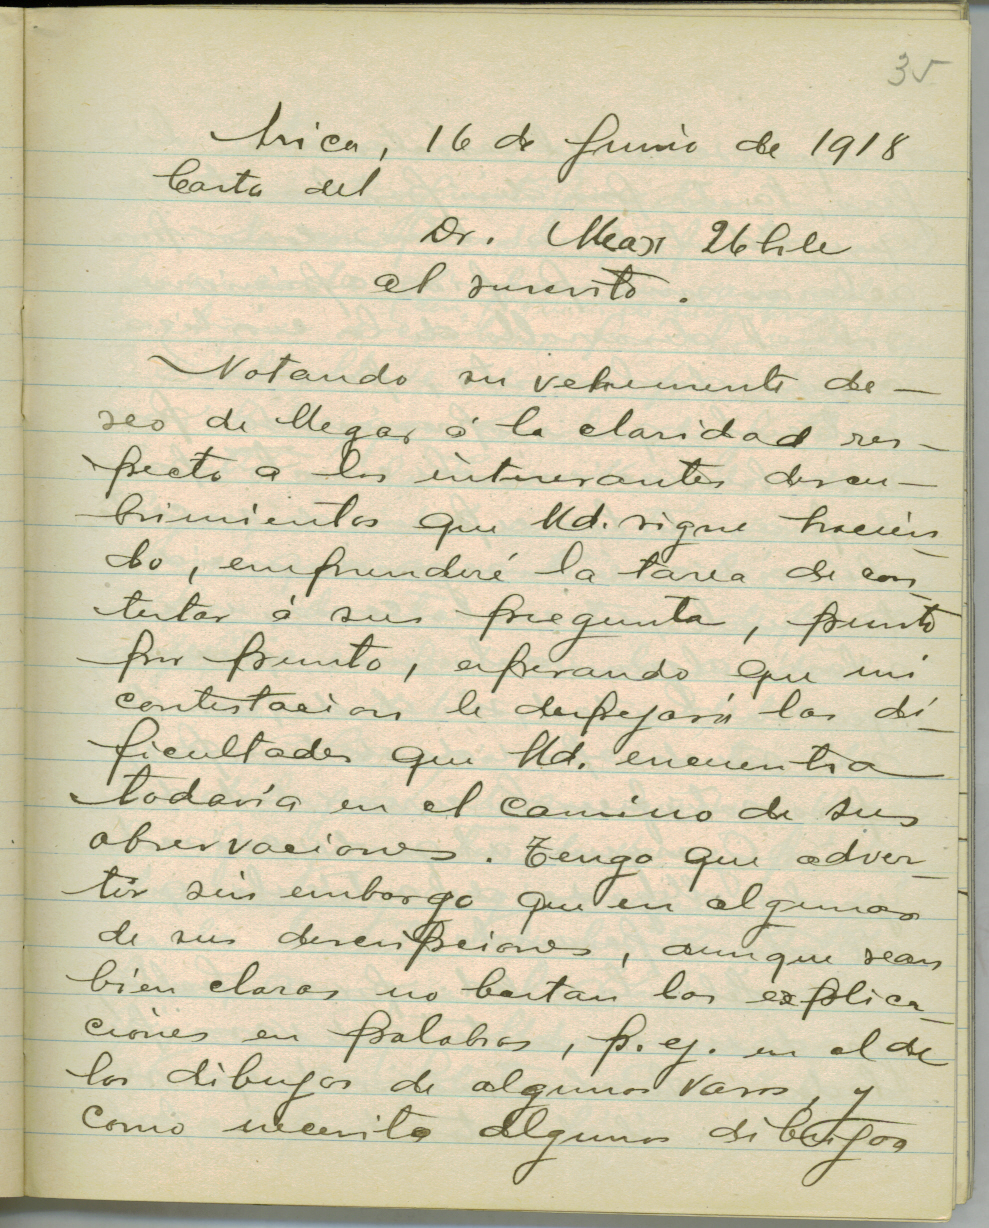 35
Arica, 16 de Junio de 1918
Carta del
Dr. Max Uhle
al suscrito.
Notando su vehemente de-
seo de llegar á la claridad res-
pecto a los interesantes descu-
brimientos que Ud. sigue hacien
do, emprenderé la tarea de con
testar á sus pregunta, punto
por punto, esperando que mi
contestacion le despejará las di-
ficultades que Ud. encuentra
todavía en el camino de sus
observaciones. Tengo que adver-
tir sin embargo que en algunas
de sus descripciones, aunque sean
bien claras no bastan las explica-
ciones en palabras, p. ej. en el de
los dibujos de algunos vasos, y
como necesito algunos dibujos